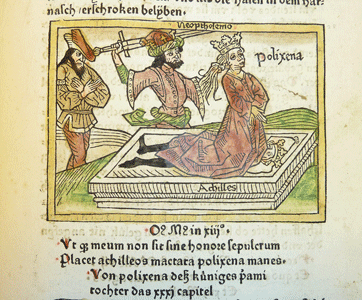 die haſen in dem har-
naſch / erſchroken belẏben.
Neopthelemo
polixena
Achilles
Oͥ Mͥ in xiijͦ.
Vt qꝫ meum non ſit ſine honore ſepulcrum
Placet achilleos mactata polixena manes.
Von polixena deß küniges pͥami
tochter das xxxj capitel